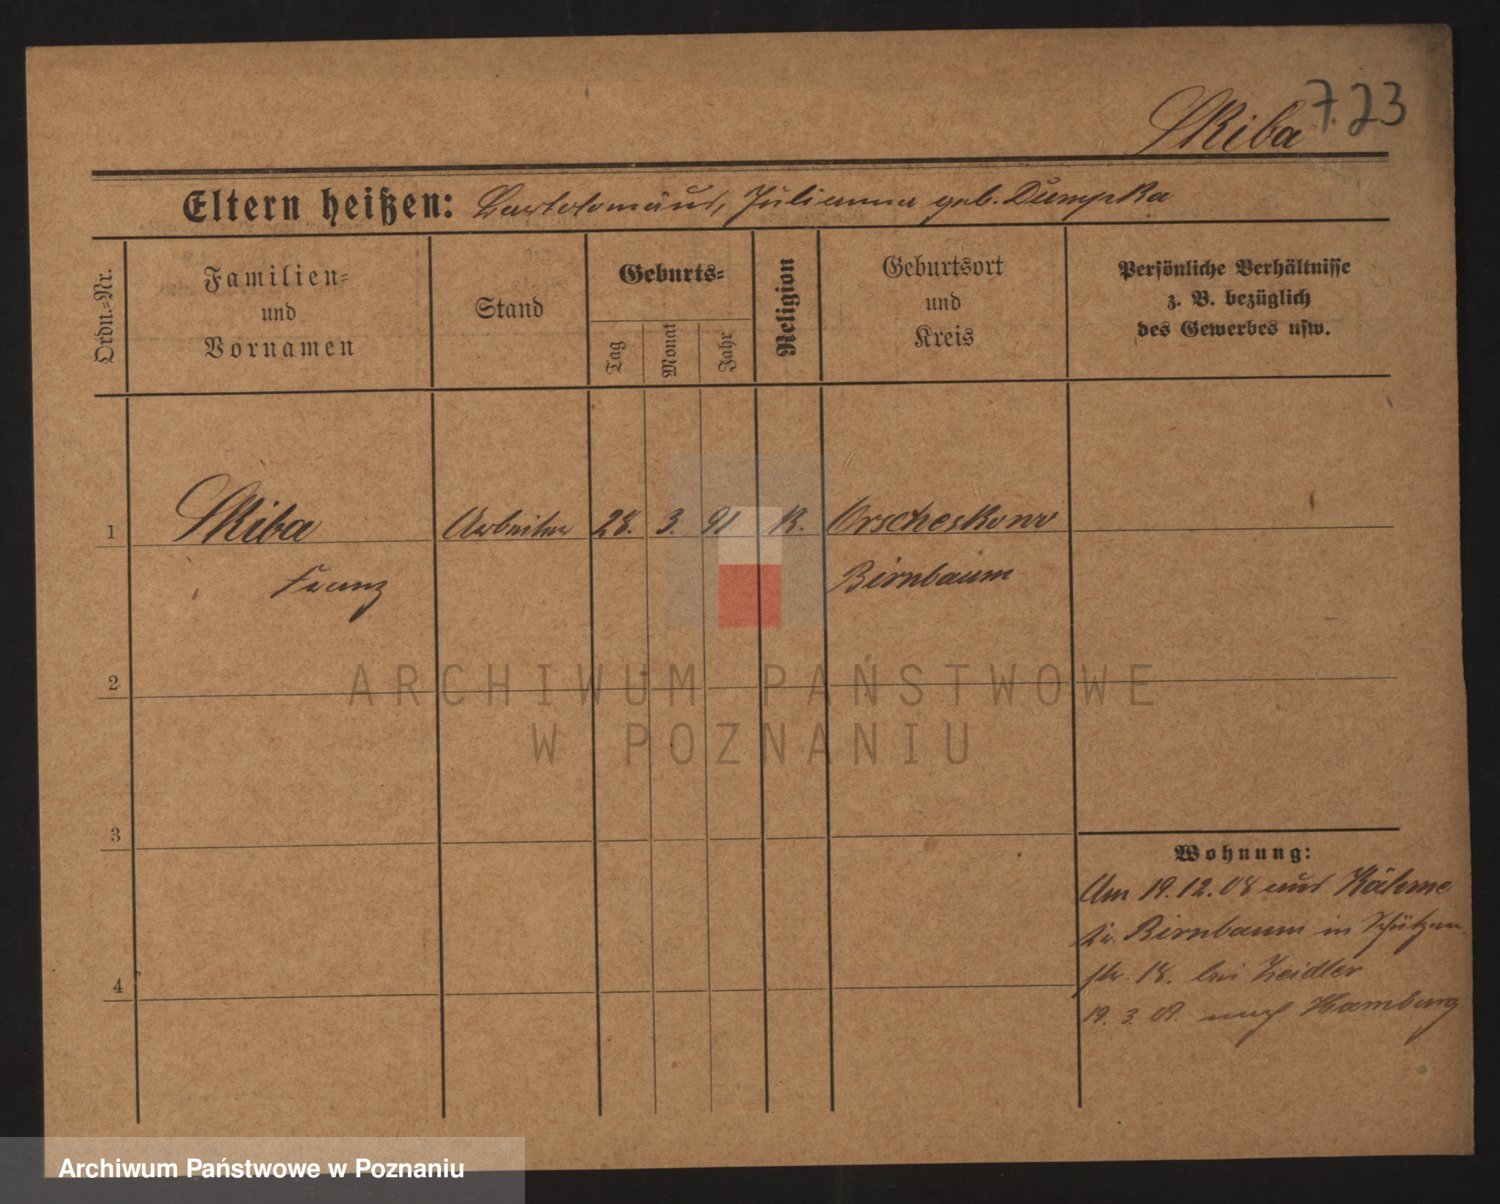 Skiba 723
Eltern heißen: Bartolomäus, Julianna geb. Dumpka
Ordn.-Nr.
Familien-
und
Vornamen
Stand
Geburts-
Tag
Monat
Jahr
Religion
Geburtsort
und
Kreis
Persönliche Verhältnisse
z. B. bezüglich
des Gewerbes usw.
1 Skiba Arbeiter 28. 3. 91 K. Orscheskowo
Franz Birnbaum
2
3
4
Wohnung:
Am 19.12.08 aus Kähme
Kr. Birnbaum in Schützen
str. 18. bei Zeidler
19. 3. 09. nach Hamburg
ARCHIWUM PAŃSTWOWE
W POZNANIU
Archiwum Państwowe w Poznaniu